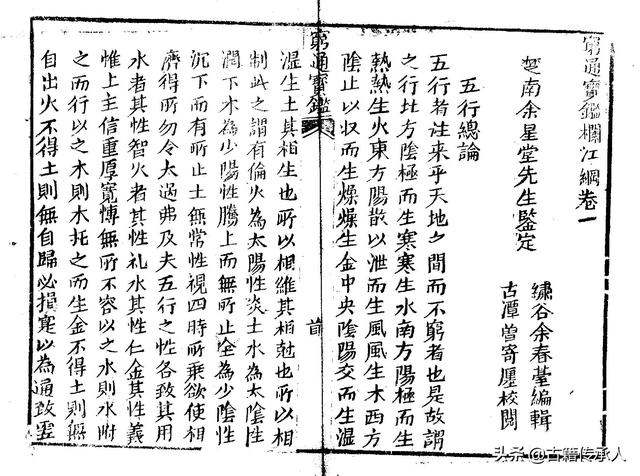 窮通寶鑑欄江綱卷一
楚南余星堂先生鑑定
繡谷余春臺編輯
古潭曾寄壓校閱
五行總論
五行者往来乎天地之間而不窮者也是故謂
之行北方陰極而生寒寒生水南方陽極而生
熱熱生火東方陽散以泄而生風風生木西方
陰止以収而生燥燥生金中央陰陽交而生溼
窮通寶鑑
首
溼生土其相生也所以相維其相尅也所以相
制此之謂有倫火為太陽性炎上水為太陰性
潤下木為少陽性騰上而無所止金為少陰性
沉下而有所止土無常性視四時所乘欲使相
濟得所勿令太過弗及夫五行之性各致其用
水者其性智火者其性礼木其性仁金其性義
惟上主信重厚寬慱無所不容以之水則水附
之而行以之木則木托之而生金不得土則無
自出火不得土則無自歸必損寔以為通致虛
头条@古籍传承人